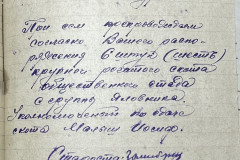 При сем препровождаем
согласно Вашего распо-
ряжения 6 штук (шесть)
крупного рогатого скота
общественного стада
с группы Яловника.
Уполномоченный по сдаче
скота Малыш Иосиф.
Староста: